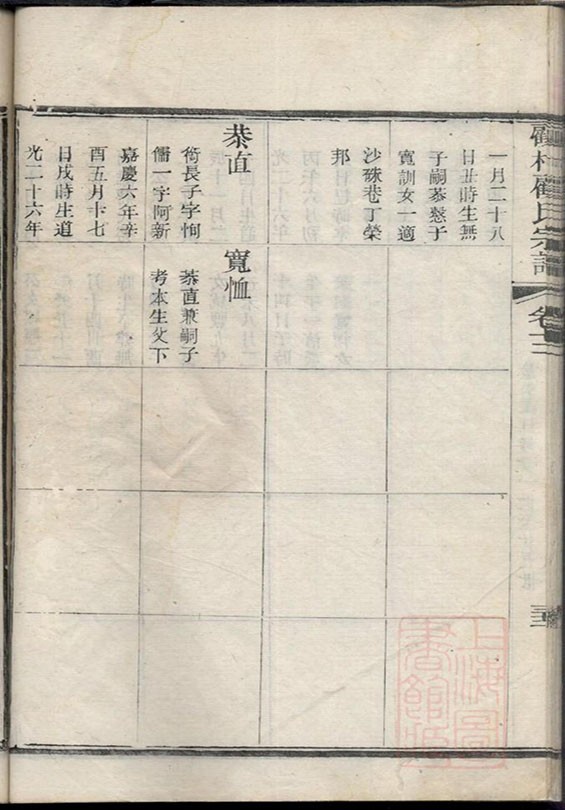 村顧氏宗譜
卷
一月二十八
日丑時生無
子嗣恭慤于
寬訓女一適
沙巷丁榮
邦
恭直
長子字恂
儒一字阿新
嘉慶六年辛
酉五月十七
日戌時生道
光二十六年
寬恤
恭直兼嗣子
考本生父下
上海圖
書館藏